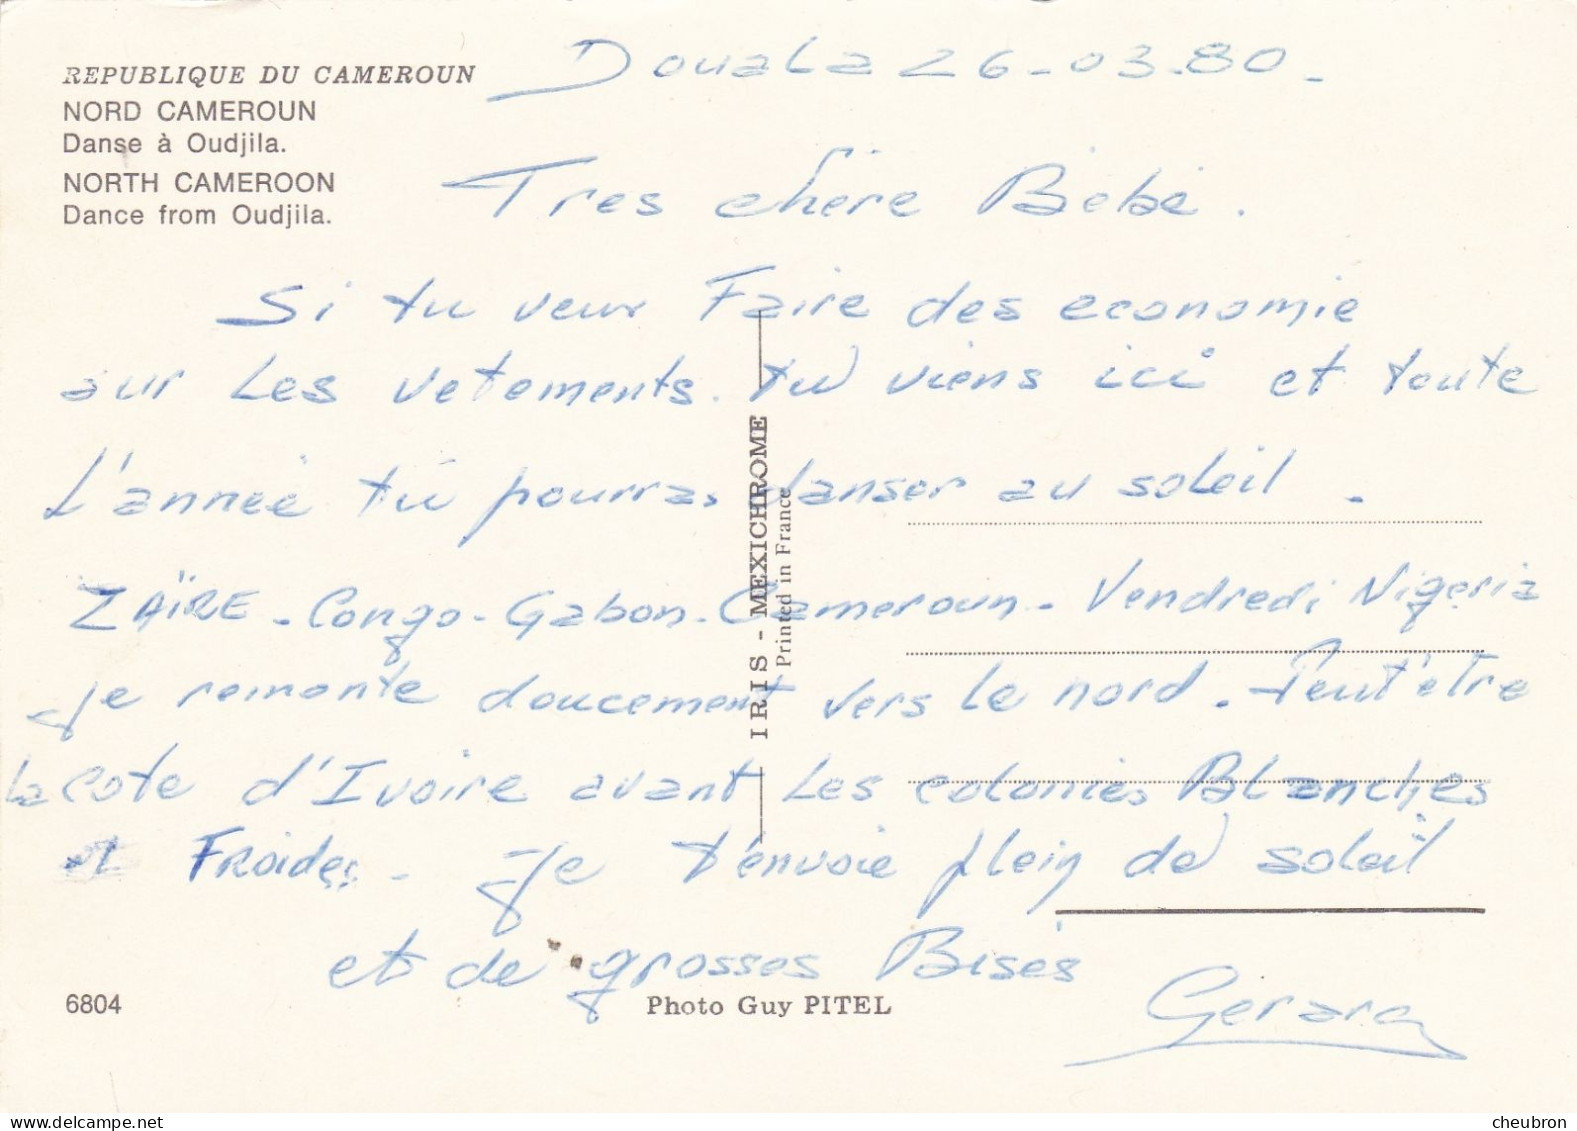 REPUBLIQUE DU CAMEROUN
NORD CAMEROUN
Danse à Oudjila.
NORTH CAMEROON
Dance from Oudjila.
Douala 26-03-80-
Tres chère Bébé.
Si tu veux Faire des economie
sur Les vetements. tu viens ici et toute
L'année tu pourras danser au soleil.
ZAÏRE - Congo - Gabon - Cameroun - Vendredi Nigeria
je remonte doucement vers Le nord. Peut'être
La cote d'Ivoire avant Les colonies Blanches
et FRoides - Je t'envoie plein de soleil
et de grosses Bises
Gérard
IRIS - MEXICHROME
Printed in France
6804
Photo Guy PITEL
www.delcampe.net
cheubron